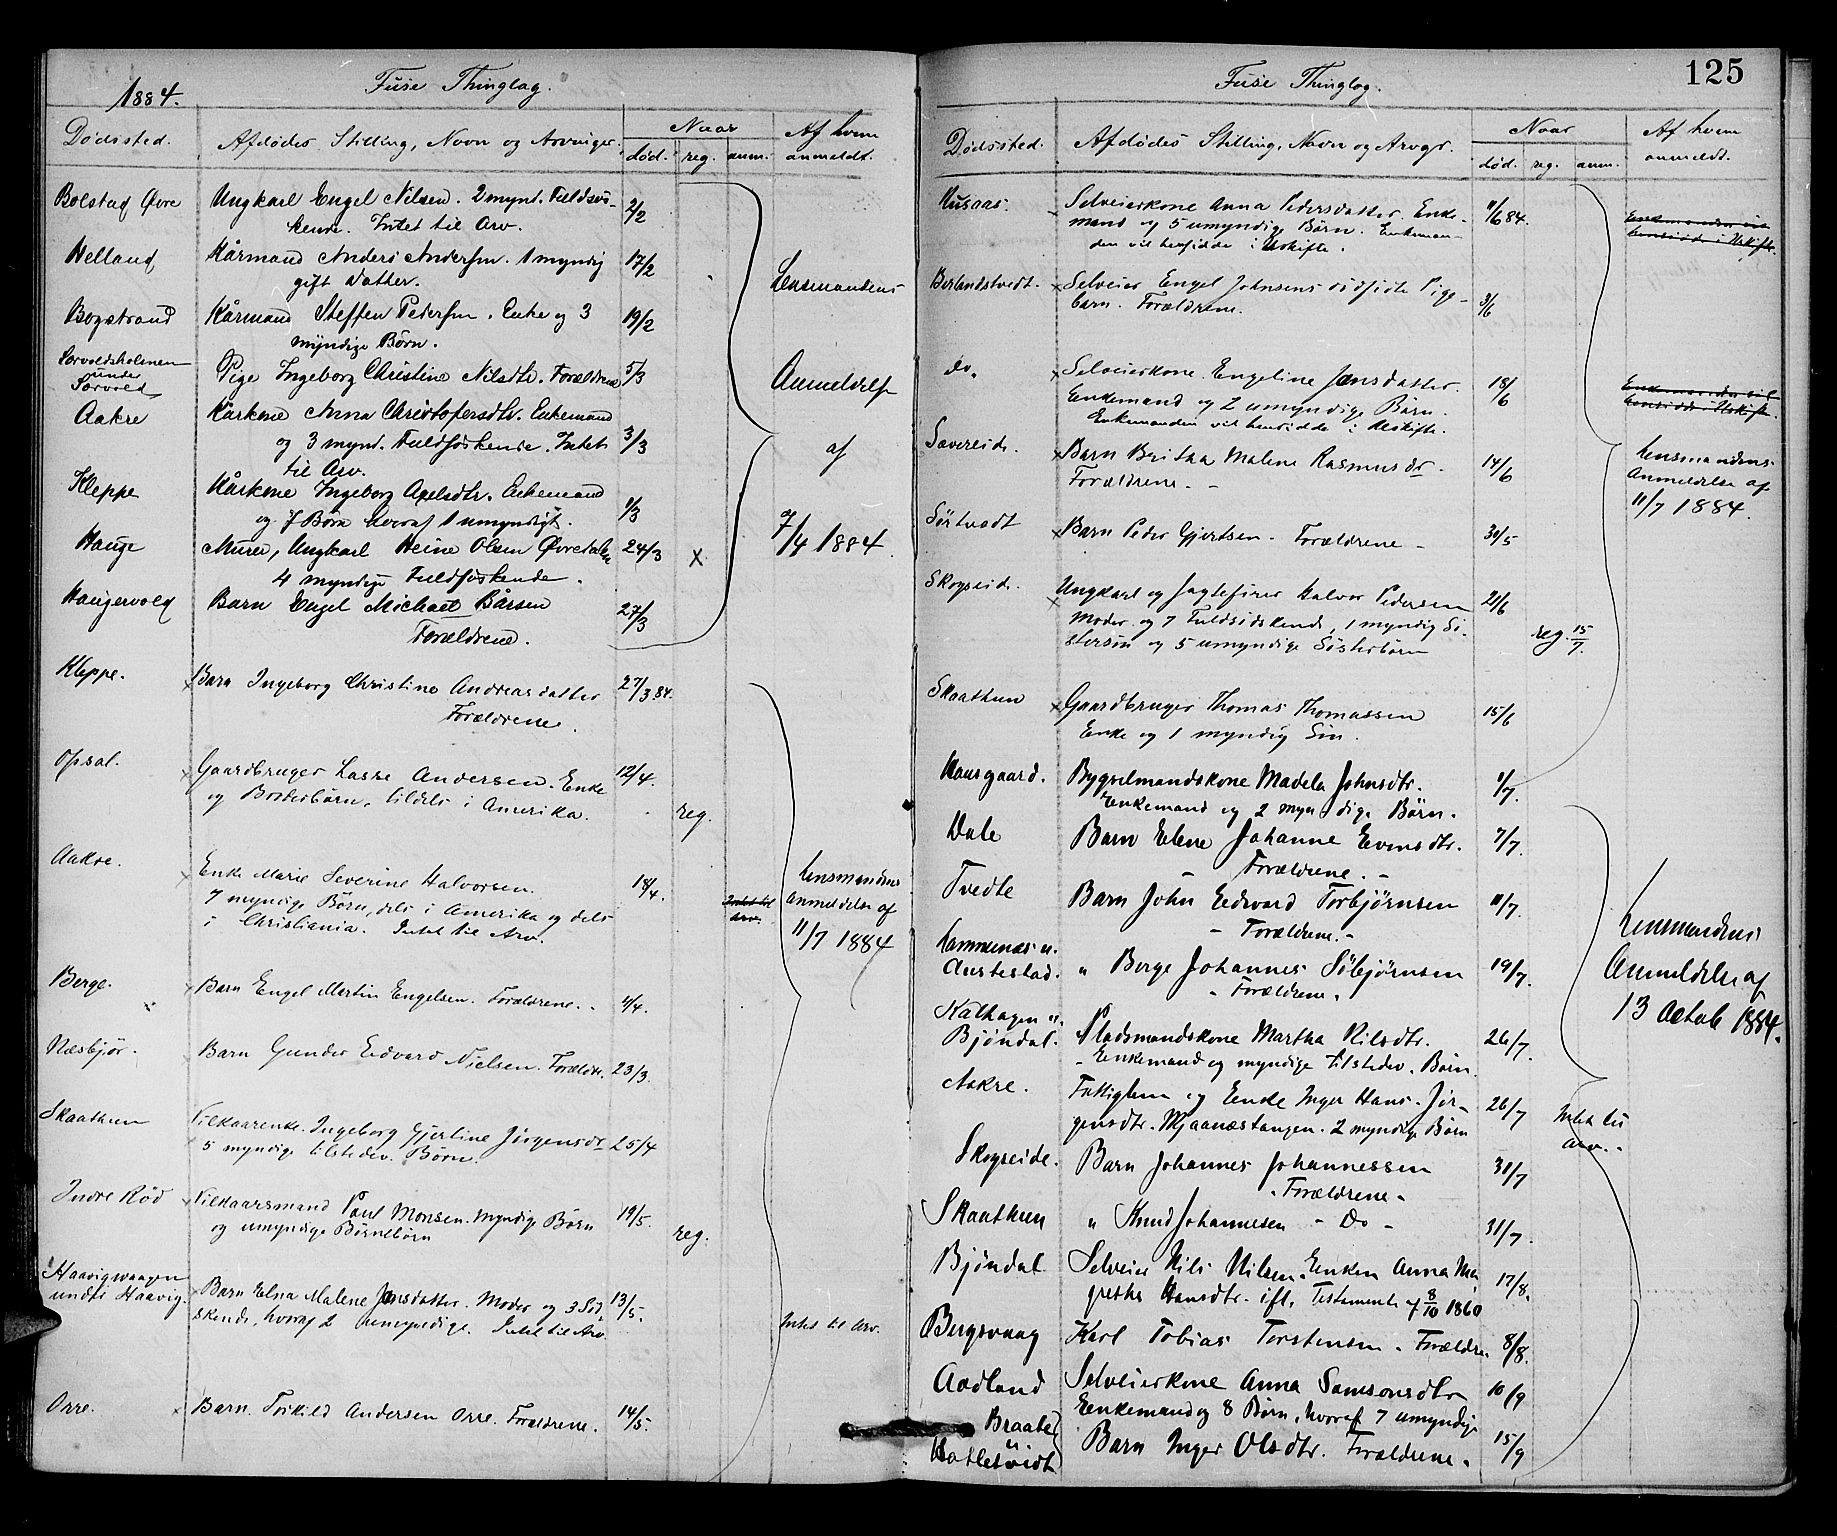 1884.
Fuse Thinglag.
Dødssted.
Afdødes Stilling, Navn og Arvinger.
Naar
død. reg. anm.
Af hvem
anmeldt.
Bolstad Øvre Ungkarl Engel Nilsen. 2 mynd. Fuldsøs- 2/2
kende. Intet til Arv.
Helland Kårmand Anders Andersen. 1 myndig 17/2
gift Datter.
Bogstrand Kårmand Steffen Pedersen. Enke og 3 19/2
myndige Børn.
Sørvoldsholmen
under
Sørvold Pige Ingeborg Christine Nilsdtr. Forældrene 5/3
Aakre Kårkone Anna Christofersdtr. Enkemand
og 3 mynd. Fuldsøskende. Intet 3/3
til Arv.
Kleppe Kårkone Ingeborg Axelsdtr. Enkemand 1/3
og 7 Børn hvoraf 1 umyndigt.
Hauge Murer, Ungkarl Heine Olsen Øvredalen 24/3 X
4 myndige Fuldsøskende.
Haugervold Barn Engel Michael Bårsen 27/3
Forældrene.
Lensmandens
Anmeldelse
af
7/4 1884.
Kleppe. Barn Ingeborg Christine Andreasdatter 27/3 84.
Forældrene.
Opsal. Gaardbruger Lasse Andersen. Enke 12/4.
og Broderbørn, tildels i Amerika. reg.
Aakre. Enke Marie Severine Halvorsen. 18/4.
7 myndige Børn, dels i Amerika og dels
i Christiania. Intet til Arv.
Intet til
Arv.
Lensmandens
Anmeldelse af
11/7 1884
Berge. Barn Engel Martin Engelsen. Forældrene. 4/4.
Næsbjør. Barn Gunder Edvard Nielsen. Forældr. 23/3.
Skaathun Vilkaarenke. Ingeborg Gjertine Jørgensdtr 25/4
5 myndige tilstedev. Børn.
Indre Rød Vilkaarsmand Paul Monsen. Myndige Børn 19/5.
og umyndige Børnebørn reg.
Haavigvaagen
under Haavig. Barn Elna Malene Jonsdatter. Moder og 3 Sød 13/5.
skende, hvoraf 2 umyndige. Intet til Arv. Intet til Arv.
Orre. Barn. Torkild Andersen Orre. Forældrene. 14/5.
125
Fuse Thinglag.
Dødssted.
Afdødes Stilling, Navn og Arvgr.
Naar
død. reg. anm.
Af hvem
anmeldt.
Husaas. Selveierkone Anna Pedersdatter. Enke- 11/6 84.
mand og 5 umyndige Børn. Enkeman-
den vil hensidde i Uskifte.
Enkemanden vil
hensidde i Uskifte.
Berlandstvedt. Selveier Engel Johnsens dødfødte Pige- 3/6
barn. Forældrene.
Do. Selveierkone Engeline Jensdatter. 18/6
Enkemand og 2 umyndige Børn.
Enkemanden vil hensidde i Uskifte.
Enkemanden vil
hensidde i Uskifte.
Sævereide. Barn Britha Malene Rasmusdr. 14/6
Forældrene. -
Sørtvedt Barn Peder Gjertsen - Forældrene - 30/5
Skogseid. Ungkarl og Jagtefører Halvor Pedersen 21/6
Moder og 7 Fuldsødskende, 1 myndig Sø-
stersøn og 5 umyndige Søsterbørn reg. 15/7.
Skaathun Gaardbruger Thomas Thomassen 15/6
Enke og 1 myndig Søn.
Lensmandens
Anmeldelse af
11/7 1884.
Haugaard. Bygselmandskone Madela Johnsdtr. 1/7.
Enkemand og 2 myndige Børn.
Dale Barn Elene Johanne Evensdtr. 7/7.
- Forældrene. -
Tvedte Barn John Edvard Torbjørnsen 11/7.
- Forældrene. -
Hammenæs u.
Austestad. " Berge Johannes Søbjørnsen 19/7.
- Forældrene.
Kalhagen u.
Bjøndal. Pladsmandskone Martha Nilsdtr. 26/7.
- Enkemand og myndige tilstedev. Børn.
Lensmandens
Anmeldelse af
13 Octob 1884.
Aakre. Fattiglem og Enke Inger Hans-Jør- 26/7
gensdtr. Mjaanæstangen. 2 myndige Børn
Intet til
Arv.
Skogseide. Barn Johannes Johannessen 31/7
- Forældrene -
Skaathun " Knud Johannesen - Do - 31/7.
Bjøndal Selveier Nils Nilsen. Enken Anna Ma 17/8.
grethe Hansdtr. ifl. Testamente af 8/10 1860
Bergsvaag Karl Tobias Torstensen - Forældre. 8/8.
Aadland Selveierkone Anna Samsonsdtr 10/9
Enkemand og 8 Børn, hvoraf 7 umyndige
Braate
u
Hatletvedt Barn Inger Olsdtr. Forældrene. 15/9